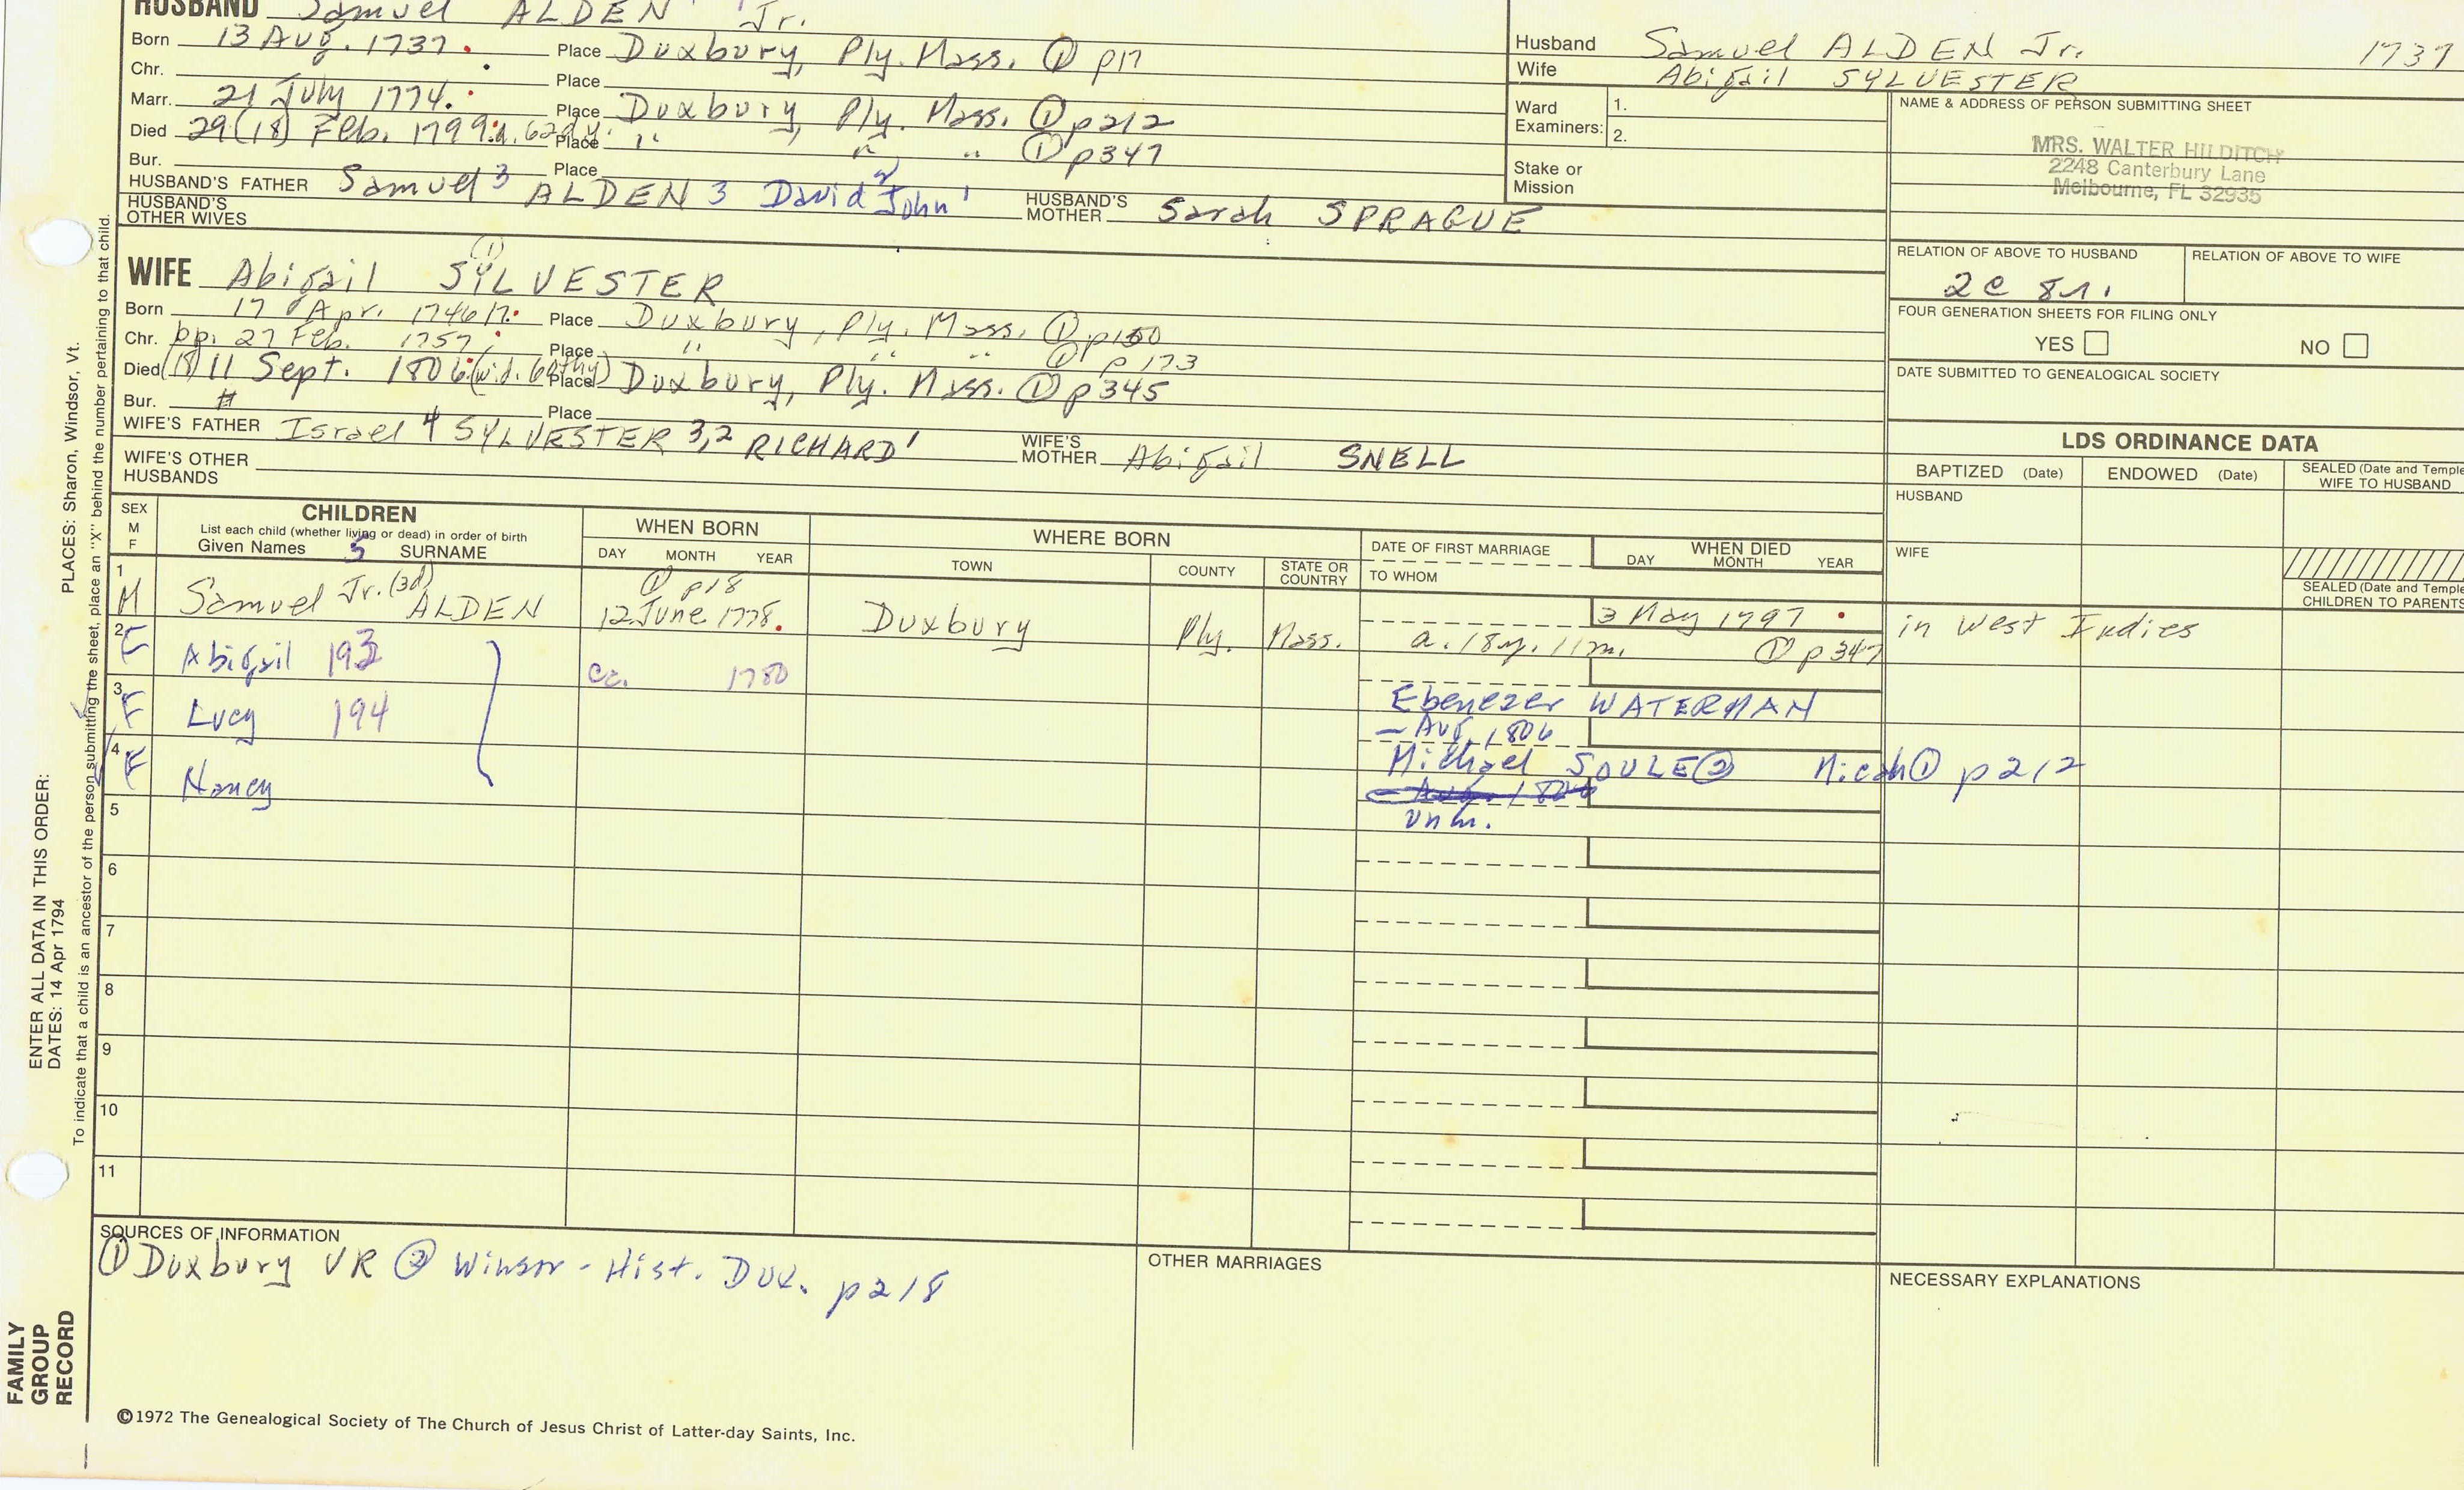 HUSBAND Samuel ALDEN Jr.
Born 13 Aug. 1737. Place Duxbury, Ply. Mass. ① p17
Chr. Place
Marr. 21 July 1774. Place Duxbury, Ply. Mass. ① p212
Died 29(18) Feb. 1799 Place " " " ① p347
Bur. Place
HUSBAND'S FATHER Samuel 3 ALDEN 3 David 2 John 1 HUSBAND'S MOTHER Sarah SPRAGUE
HUSBAND'S OTHER WIVES
WIFE Abigail SYLVESTER
Born 17 Apr. 1746/7. Place Duxbury, Ply. Mass. ① p150
Chr. bp. 27 Feb. 1757 Place " " " ① p173
Died (18) 11 Sept. 1806 Place Duxbury, Ply. Mass. ① p345
Bur. # Place
WIFE'S FATHER Israel 4 SYLVESTER 3,2 RICHARD 1 WIFE'S MOTHER Abigail SNELL
WIFE'S OTHER HUSBANDS
Husband Samuel ALDEN Jr. 1737
Wife Abigail SYLVESTER
Ward Examiners: 1.
2.
Stake or Mission
NAME & ADDRESS OF PERSON SUBMITTING SHEET
MRS. WALTER HILDITCH
2248 Canterbury Lane
Melbourne, FL 32935
RELATION OF ABOVE TO HUSBAND RELATION OF ABOVE TO WIFE
2c 8r.
FOUR GENERATION SHEETS FOR FILING ONLY
YES NO
DATE SUBMITTED TO GENEALOGICAL SOCIETY
LDS ORDINANCE DATA
BAPTIZED (Date) ENDOWED (Date) SEALED (Date and Temple
WIFE TO HUSBAND
HUSBAND
WIFE
SEALED (Date and Temple
CHILDREN TO PARENTS
SEX M F CHILDREN
List each child (whether living or dead) in order of birth
Given Names 5 SURNAME
WHEN BORN
DAY MONTH YEAR
WHERE BORN
TOWN COUNTY STATE OR COUNTRY
DATE OF FIRST MARRIAGE
TO WHOM
WHEN DIED
DAY MONTH YEAR
1 M Samuel Jr. (3d) ALDEN ① p18 12 June 1778. Duxbury Ply. Mass. 3 May 1797 . in West Indies
a. 18y. 11m. ① p347
2 F Abigail 193 ca. 1780
Ebenezer WATERMAN
3 F Lucy 194 – Aug 1806
Michael SOULE ② Micah ① p212
4 F Nancy
unm.
5
6
7
8
9
10
11
SOURCES OF INFORMATION
① Duxbury VR ② Winsor - Hist. Dux. p218
OTHER MARRIAGES
NECESSARY EXPLANATIONS
©1972 The Genealogical Society of The Church of Jesus Christ of Latter-day Saints, Inc.
FAMILY GROUP RECORD
ENTER ALL DATA IN THIS ORDER:
DATES: 14 Apr 1794
PLACES: Sharon, Windsor, Vt.
To indicate that a child is an ancestor of the person submitting the sheet, place an "X" behind the number pertaining to that child.